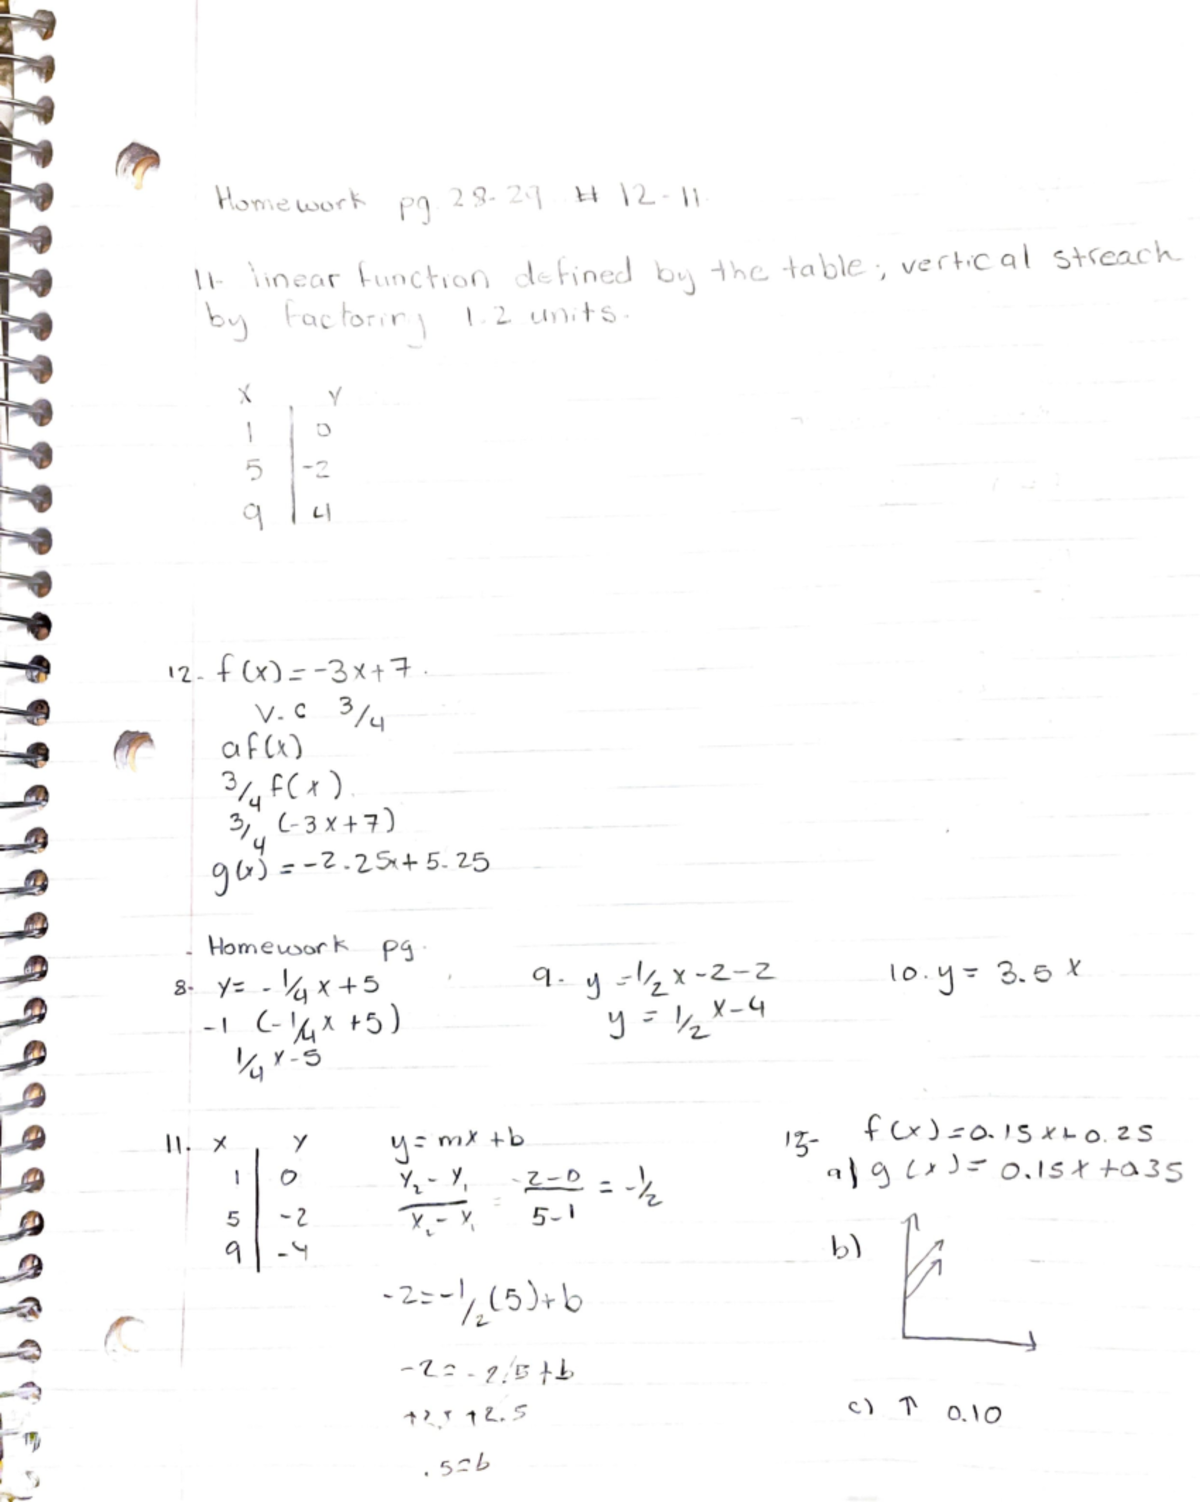 Homework pg. 28-29 # 12-11.
11- linear function defined by the table; vertical streach
by factoring 1.2 units.
X | Y
1 | 0
5 | -2
9 | 4
12- f(x)=-3x+7.
V.c 3/4
af(x)
3/4 f(x).
3/4 (-3x+7)
g(x) = -2.25x+5.25
- Homework pg.
8- y= -1/4x+5
-1 (-1/4x+5)
1/4x-5
9- y=1/2x-2-2
y = 1/2x-4
10. y= 3.5x
11. x | y
1 | 0
5 | -2
9 | -4
y=mx+b
Y₂-Y₁/X₂-X₁ = -2-0/5-1 = -1/2
-2=-1/2(5)+b
-2=-2.5+b
+2.5 +2.5
.5=b
f(x)=0.15x+0.25
a) g(x)= 0.15x+0.35
b)
c) ↑ 0.10